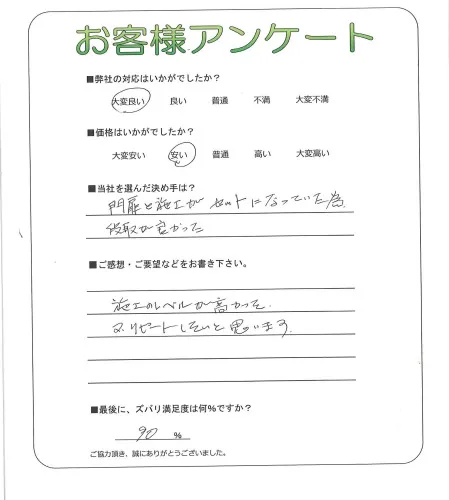 お客様アンケート
■弊社の対応はいかがでしたか?
大変良い 良い 普通 不満 大変不満
■価格はいかがでしたか?
大変安い 安い 普通 高い 大変高い
■当社を選んだ決め手は?
門扉と施工がセットになっていた為
が良かった
■ご感想・ご要望などをお書き下さい。
施工のレベルが高かった.
又リピートしたいと思います.
■最後に、ズバリ満足度は何%ですか?
90 %
ご協力頂き、誠にありがとうございました。